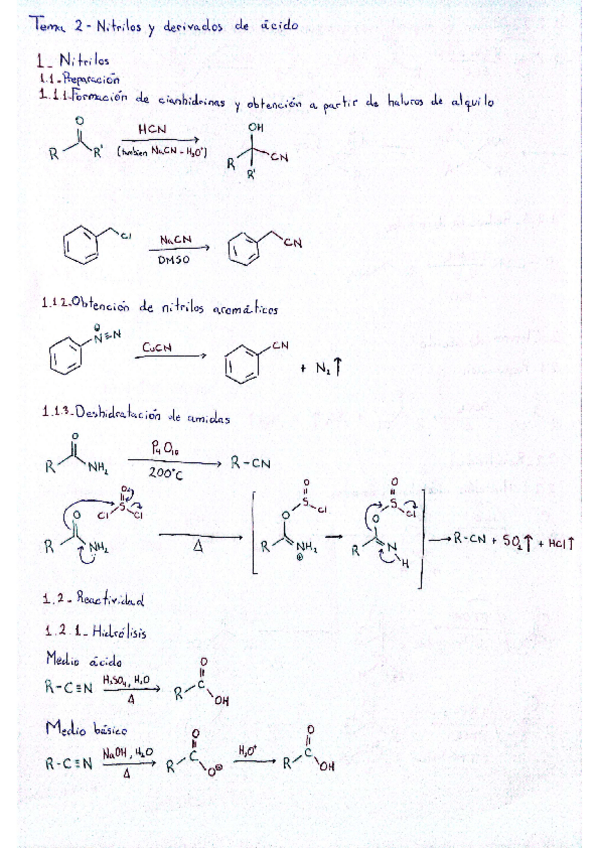 Tema 2 - Nitrilos y derivados de ácido
1_ Nitrilos
1.1_ Preparación
1.1.1_ Formación de cianhidrinas y obtención a partir de haluros de alquilo
O
R R'
HCN
(tambien NaCN - H3O+)
OH
R CN
R'
Cl
NaCN
DMSO
CN
1.1.2_ Obtención de nitrilos aromáticos
⊕
N≡N
CuCN
CN
+ N2↑
1.1.3_ Deshidratación de amidas
O
R NH2
P4O10
200°C
R-CN
O
Cl S Cl
O
R NH2
Δ
O
S Cl
O
R NH2
⊕
O
S Cl
O
R N H
R-CN + SO2↑ + HCl↑
1.2_ Reactividad
1.2.1_ Hidrólisis
Medio ácido
R-C≡N
H2SO4, H2O
Δ
O
R C OH
Medio básico
R-C≡N
NaOH, H2O
Δ
O
R C O⊖
H3O+
O
R C OH